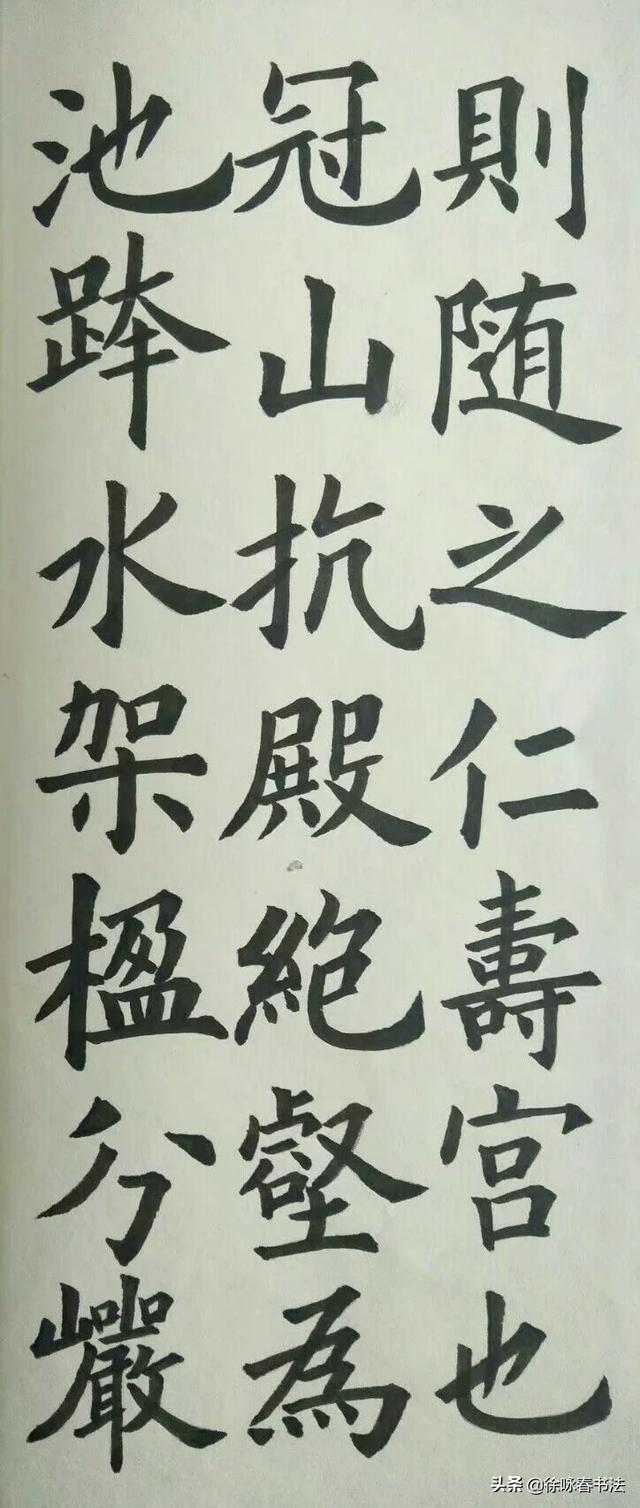 則随之仁壽宮也
冠山抗殿絶壑為
池跨水架楹分巖
头条 @徐咏春书法